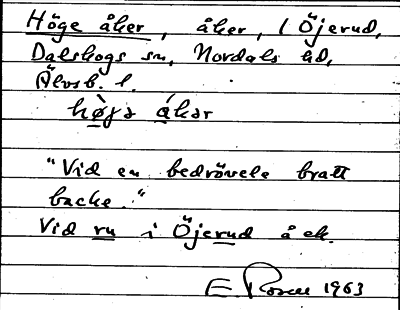 Höge åker, åker, i Öjerud,
Dalskogs sn, Nordals hd,
Älvsb. l.
hø̀gə ákər
"Vid en bedrövele bratt
backe."
Vid ru i Öjerud å ek.
E. Rosen 1963